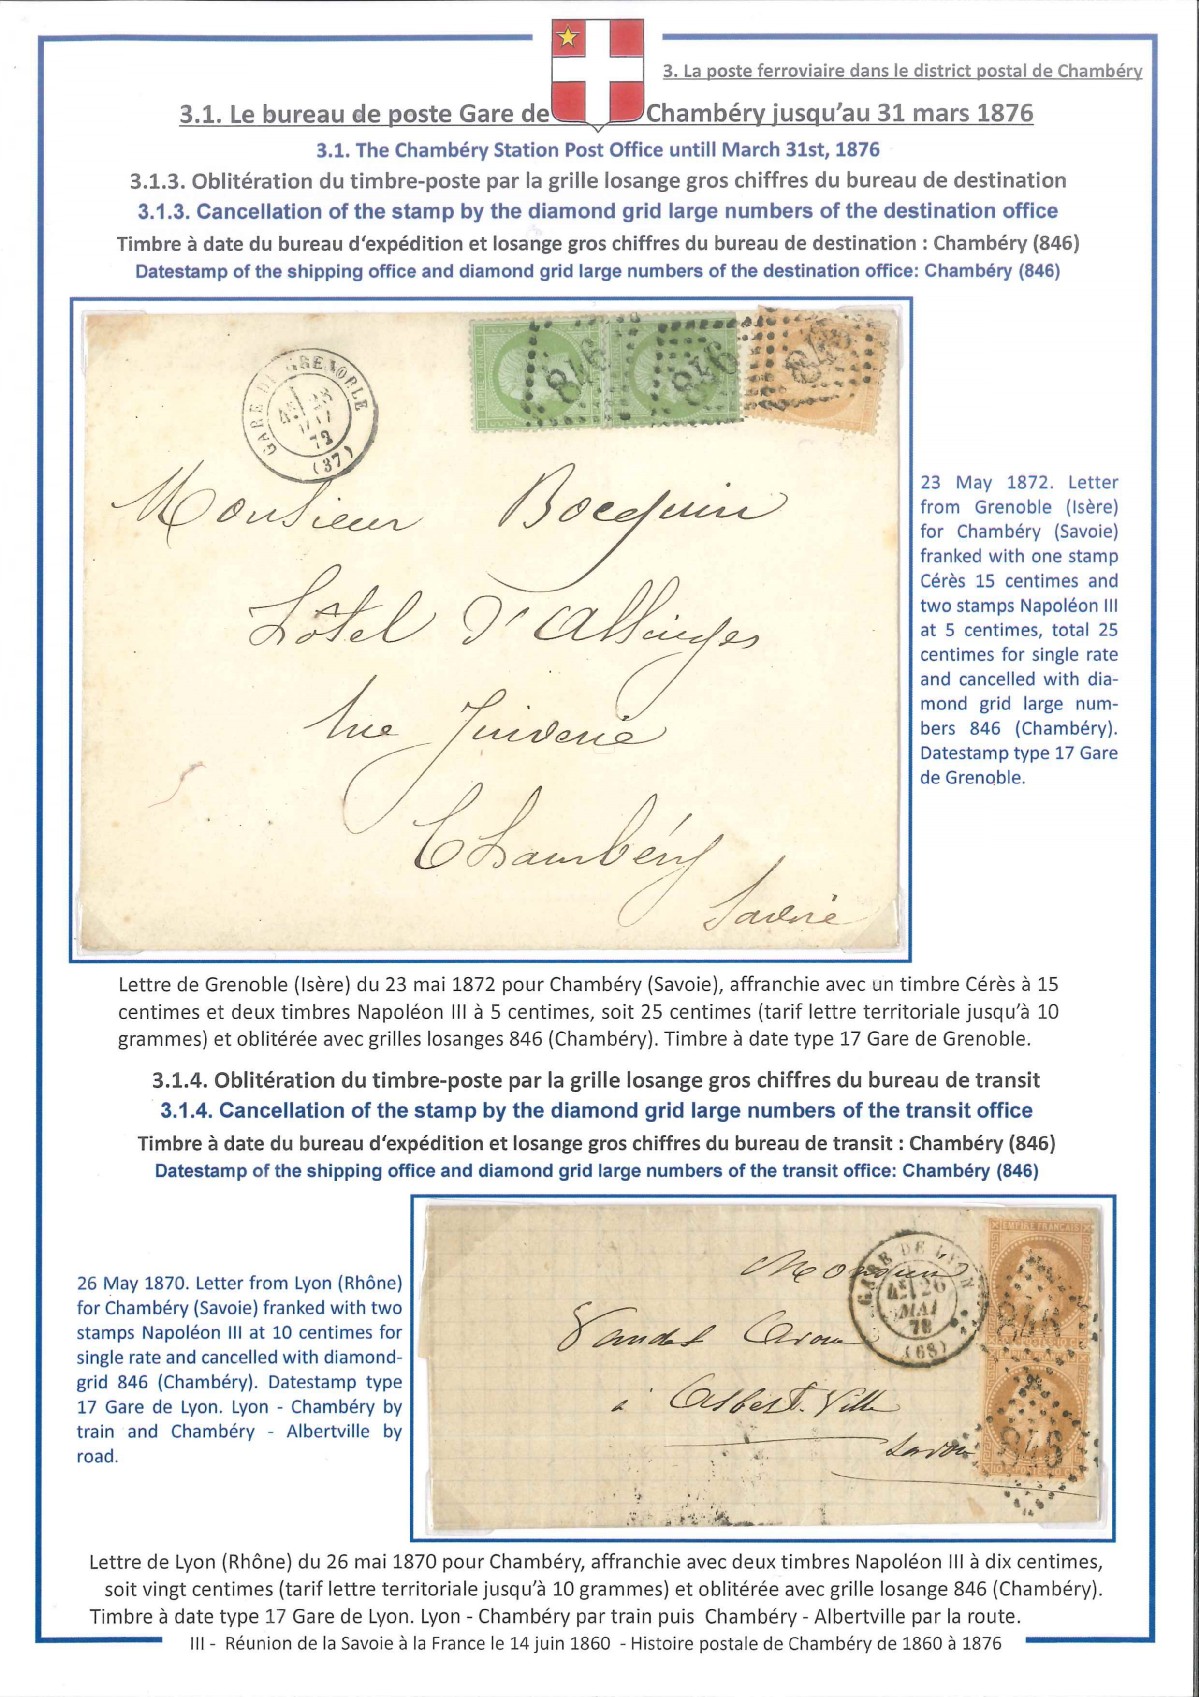 3. La poste ferroviaire dans le district postal de Chambéry
3.1. Le bureau de poste Gare de Chambéry jusqu'au 31 mars 1876
3.1. The Chambéry Station Post Office untill March 31st, 1876
3.1.3. Oblitération du timbre-poste par la grille losange gros chiffres du bureau de destination
3.1.3. Cancellation of the stamp by the diamond grid large numbers of the destination office
Timbre à date du bureau d'expédition et losange gros chiffres du bureau de destination : Chambéry (846)
Datestamp of the shipping office and diamond grid large numbers of the destination office: Chambéry (846)
846 846 846
GARE DE GRENOBLE
72
(37)
Monsieur Bocquin
Hôtel d'Allinges
Rue Juiverie
Chambéry
Savoie
23 May 1872. Letter
from Grenoble (Isère)
for Chambéry (Savoie)
franked with one stamp
Cérès 15 centimes and
two stamps Napoléon III
at 5 centimes, total 25
centimes for single rate
and cancelled with dia-
mond grid large num-
bers 846 (Chambéry).
Datestamp type 17 Gare
de Grenoble.
Lettre de Grenoble (Isère) du 23 mai 1872 pour Chambéry (Savoie), affranchie avec un timbre Cérès à 15
centimes et deux timbres Napoléon III à 5 centimes, soit 25 centimes (tarif lettre territoriale jusqu'à 10
grammes) et oblitérée avec grilles losanges 846 (Chambéry). Timbre à date type 17 Gare de Grenoble.
3.1.4. Oblitération du timbre-poste par la grille losange gros chiffres du bureau de transit
3.1.4. Cancellation of the stamp by the diamond grid large numbers of the transit office
Timbre à date du bureau d'expédition et losange gros chiffres du bureau de transit : Chambéry (846)
Datestamp of the shipping office and diamond grid large numbers of the transit office: Chambéry (846)
26 May 1870. Letter from Lyon (Rhône)
for Chambéry (Savoie) franked with two
stamps Napoléon III at 10 centimes for
single rate and cancelled with diamond-
grid 846 (Chambéry). Datestamp type
17 Gare de Lyon. Lyon - Chambéry by
train and Chambéry - Albertville by
road.
EMPIRE FRANÇAIS
GARE DE LYON
26
MAI
(68)
846
846
Monsieur
à Albert-Ville
Savoie
Lettre de Lyon (Rhône) du 26 mai 1870 pour Chambéry, affranchie avec deux timbres Napoléon III à dix centimes,
soit vingt centimes (tarif lettre territoriale jusqu'à 10 grammes) et oblitérée avec grille losange 846 (Chambéry).
Timbre à date type 17 Gare de Lyon. Lyon - Chambéry par train puis Chambéry - Albertville par la route.
III - Réunion de la Savoie à la France le 14 juin 1860 - Histoire postale de Chambéry de 1860 à 1876